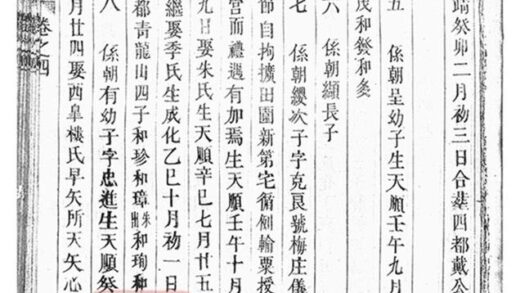 靖癸卯二月初三日合葬四都戴公
五　係朝呈幼子生天順壬午九月
茂和燮和
六　係朝顯長子
七　係朝纓次子字克良號梅庄儀
節自拘擴田園新第宅衛創輸粟授
官而禮遇有加焉生天順壬午十月
九日娶朱氏生天順辛巳七月廿五
繼娶季氏生成化乙巳十月初一日
郡青龍山四子和珍和璋朱出和珣和
八　係朝有幼子字忠進生天順癸
月廿四娶西皐機氏早矢所天矢心
卷之四